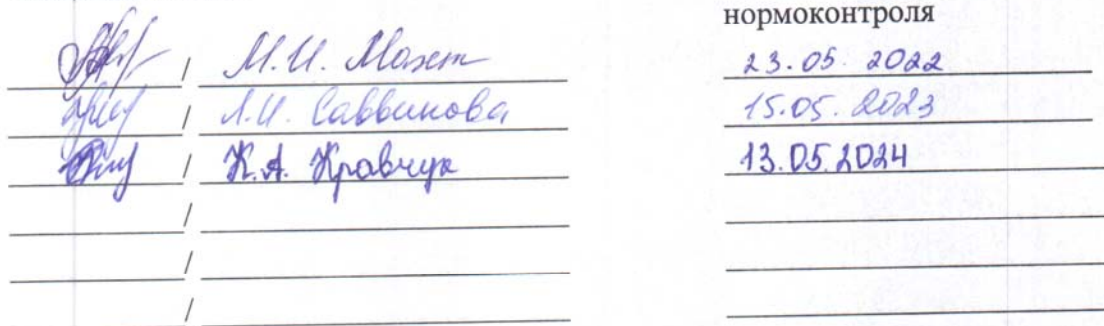 нормоконтроля
/ М.И. 23.05.2022
/ Л.И. Саввинова 15.05.2023
/ К.А. Кравчук 13.05.2024
/
/
/